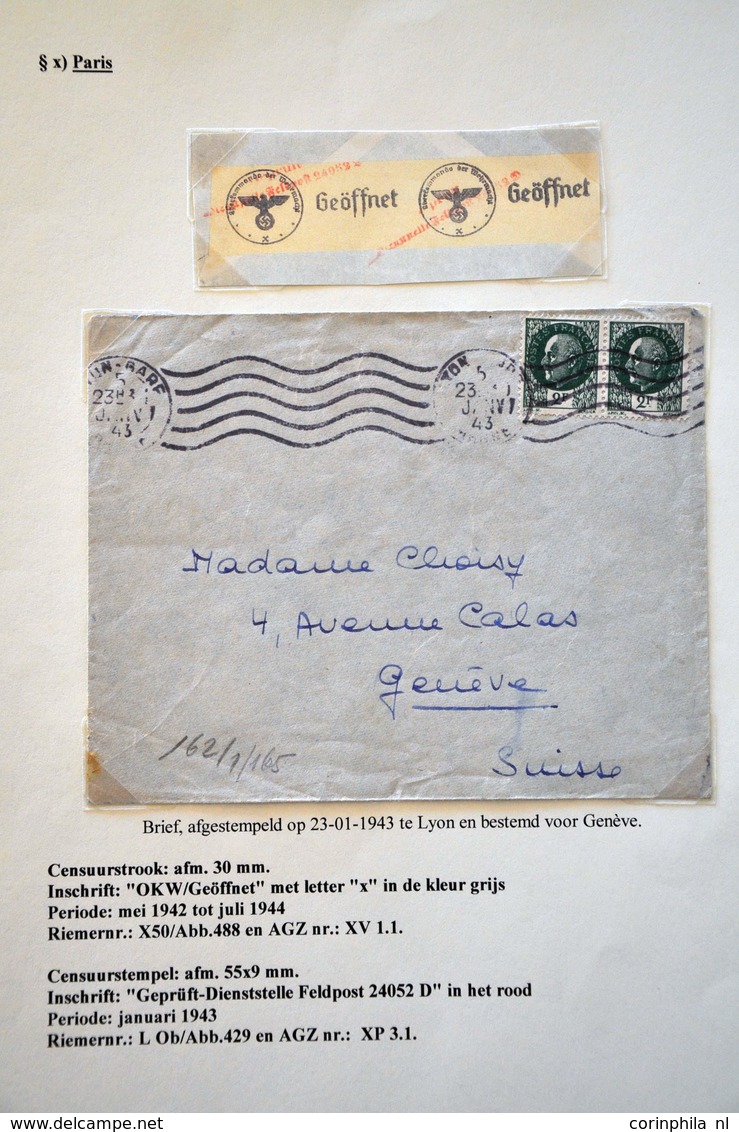 § x) Paris
Oberkommando der Wehrmacht
x
Geöffnet
Oberkommando der Wehrmacht
x
Geöffnet
5
23
JANV
43
5
23
JANV
43
2F
2F
Madame Choisy
4, Avenue Calas
Genève
Suisse
162/1/165
Brief, afgestempeld op 23-01-1943 te Lyon en bestemd voor Genève.
Censuurstrook: afm. 30 mm.
Inschrift: "OKW/Geöffnet" met letter "x" in de kleur grijs
Periode: mei 1942 tot juli 1944
Riemernr.: X50/Abb.488 en AGZ nr.: XV 1.1.
Censuurstempel: afm. 55x9 mm.
Inschrift: "Geprüft-Dienststelle Feldpost 24052 D" in het rood
Periode: januari 1943
Riemernr.: L Ob/Abb.429 en AGZ nr.: XP 3.1.
corinphila nl